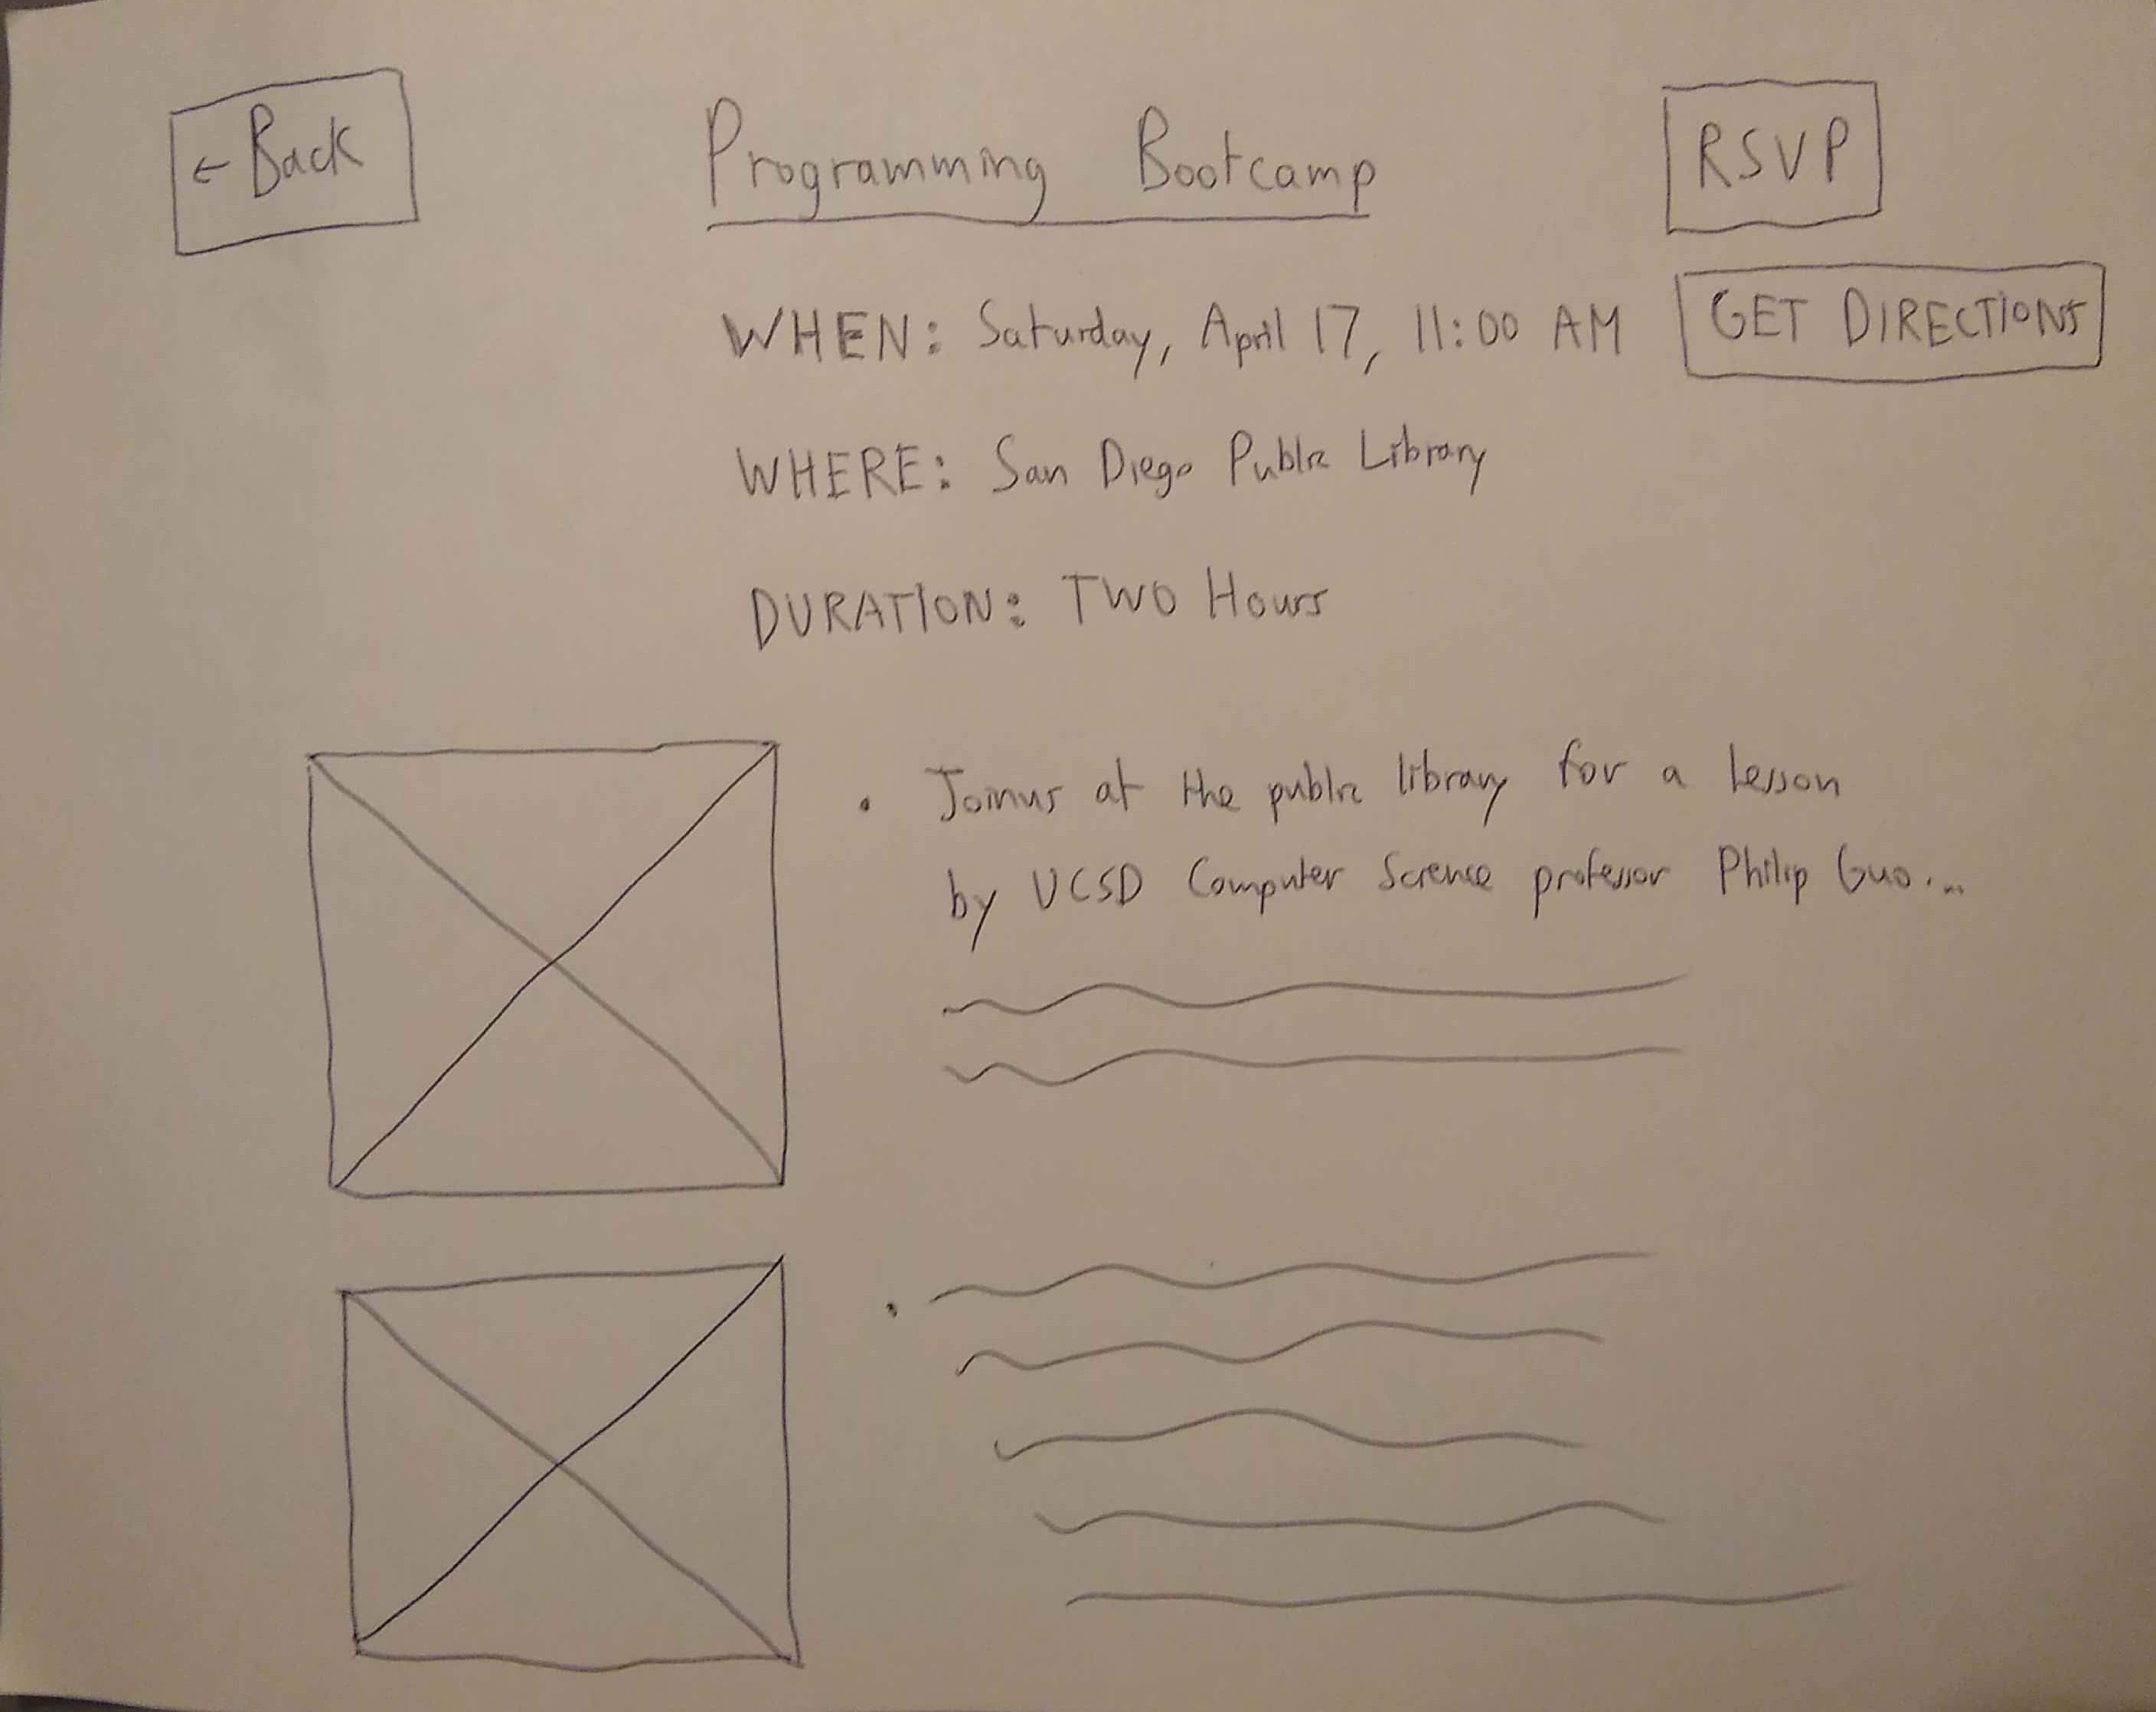 ← Back
Programming Bootcamp
RSVP
WHEN: Saturday, April 17, 11:00 AM
GET DIRECTIONS
WHERE: San Diego Public Library
DURATION: TWO Hours
• Join us at the public library for a lesson
by UCSD Computer Science professor Philip Guo...
•